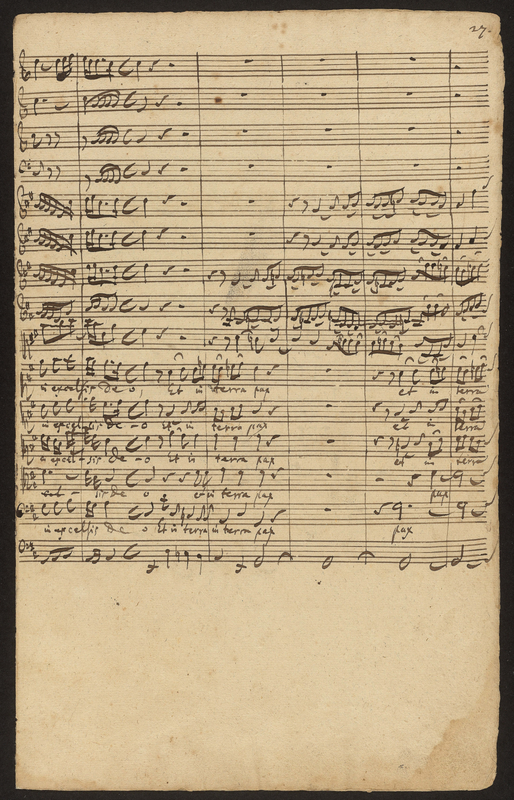 27.
in excelsis De o Et in terra pax et in terra
in excelsis de - o Et in terra pax et in terra
in excel - sis de - o Et in terra pax et in terra
cel - sis de o et in terra pax pax
in excelsis De o Et in terra in terra pax pax